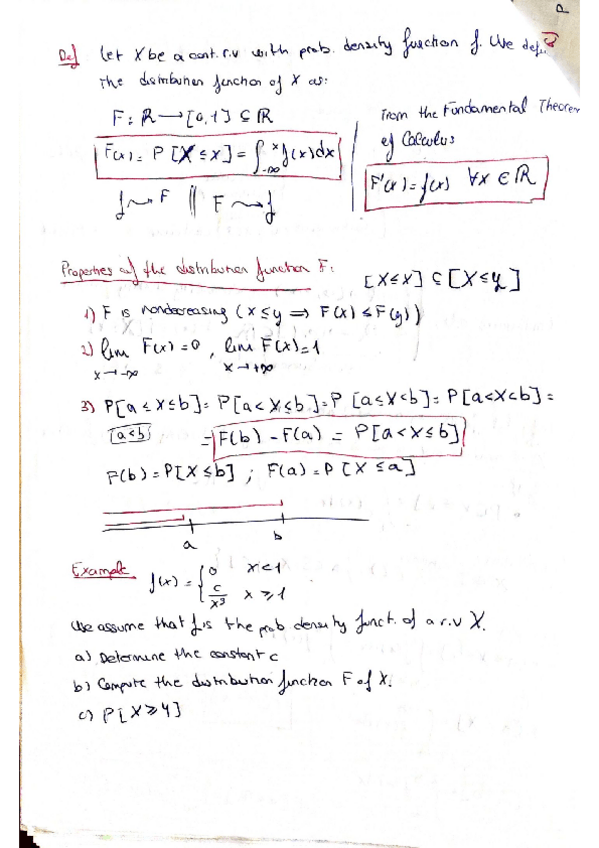 Def Let X be a cont. r.v with prob. density function f. We def
the distribution function of X as:
F: ℝ → [0,1] ⊆ ℝ
F(x) = P[X ≤ x] = ∫_{-∞}^{x} f(x)dx
f ⇝ F || F ⇝ f
From the Fundamental Theorem
of Calculus
F'(x) = f(x) ∀x ∈ ℝ
Properties of the distribution function F:
[X ≤ x] ⊆ [X ≤ y]
1) F is nondecreasing (x ≤ y ⟹ F(x) ≤ F(y))
2) lim F(x) = 0 , lim F(x) = 1
x → -∞ x → +∞
3) P[a ≤ X ≤ b] = P[a < X ≤ b] = P[a ≤ X < b] = P[a < X < b] =
a < b = F(b) - F(a) = P[a < X ≤ b]
F(b) = P[X ≤ b] ; F(a) = P[X ≤ a]
a b
Example f(x) = { 0 x < 1
c/x³ x ≥ 1
We assume that f is the prob density funct. of a r.v X.
a) Determine the constant c
b) Compute the distribution function F of X.
c) P[X ≥ 4]